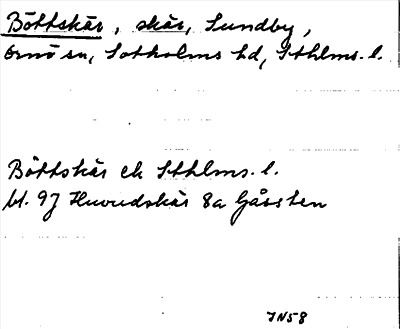 Böttskär, skär, Sundby,
Ornö sn, Sotholms hd, Sthlms. l.
Böttskär ek Sthlms. l.
bl. 97 Huvudskär 8a Gåssten
JN58